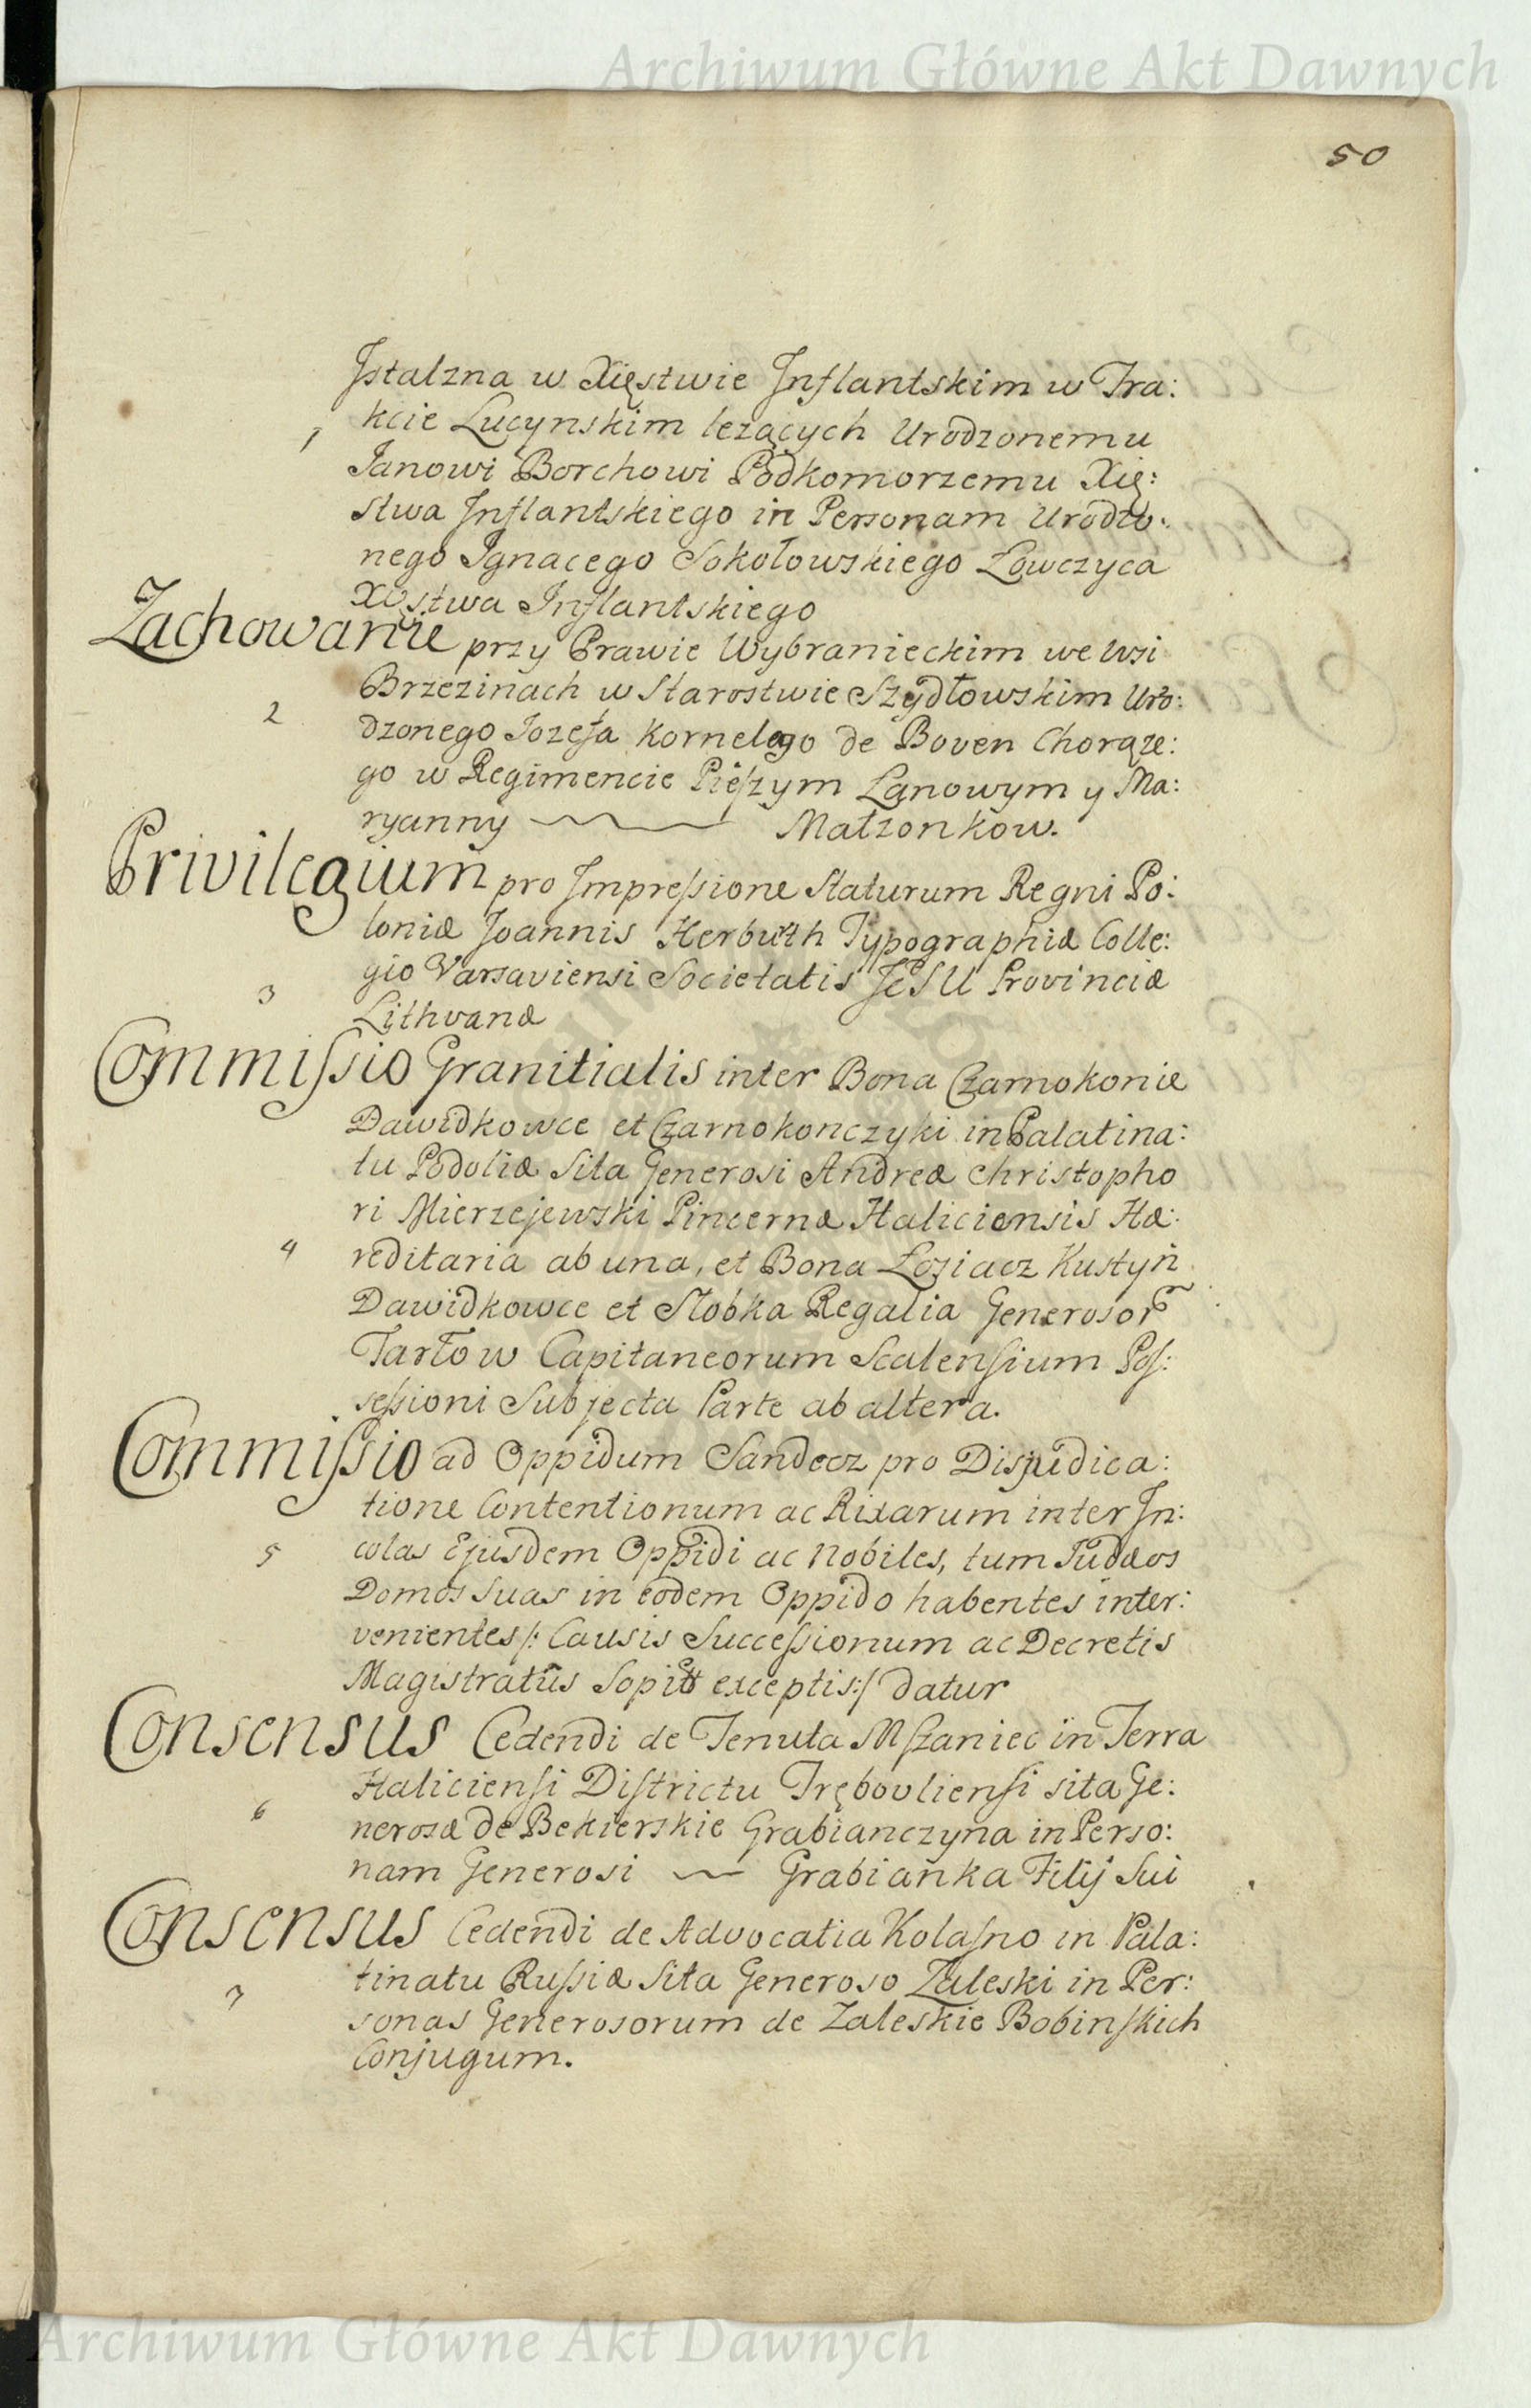 Archiwum Główne Akt Dawnych
50
Istalzna w Xięstwie Inflantskim w Tra:
1 kcie Lucynskim lezących Urodzonemu
Janowi Borchowi Podkomorzemu Xię:
stwa Inflantskiego in Personam Urodzo:
nego Ignacego Sokołowskiego Łowczyca
Xięstwa Inflantskiego
Zachowanie przy Prawie Wybranieckim we Wsi
Brzezinach w Starostwie Szydłowskim Uro:
2 dzonego Jozefa Kornelego de Boven Chorąże:
go w Regimencie Pieszym Łanowym y Ma:
ryanny Małzonkow.
Privilegium pro Impressione Staturum Regni Po:
loniæ Joannis Herburth Typographiæ Colle:
gio Varsaviensi Societatis JESU Provinciæ
3 Lithvanæ
Commissio Granitialis inter Bona Czarnokonie
Dawidkowce et Czarnokonczyki in Palatina:
tu Podoliæ Sita Generosi Andreæ Christopho
ri Mierzejewski Pincernæ Haliciensis Hæ:
4 reditaria ab una, et Bona Łosiacz Kustyn
Dawidkowce et Słobka Regalia Generosor
Tarłow Capitaneorum Scalensium Pos:
sessioni Subjecta Parte ab altera.
Commissio ad Oppidum Sandecz pro Disjudica:
tione Contentionum ac Rixarum inter In:
5 colas Ejusdem Oppidi ac Nobiles, tum Judæos
Domos Suas in eodem Oppido habentes inter:
venientes /: Causis Successionum ac Decretis
Magistratûs exceptis :/ datur
Consensus Cedendi de Tenuta Mszaniec in Terra
Haliciensi Districtu Trębovliensi sita Ge:
6 nerosæ de Bekierskie Grabianczyna in Perso:
nam Generosi Grabianka Filij Sui
Consensus Cedendi de Advocatia Kolasno in Pala:
tinatu Russiæ Sita Generoso Zaleski in Per:
7 sonas Generosorum de Zaleskie Bobinskich
Conjugum.
Archiwum Główne Akt Dawnych